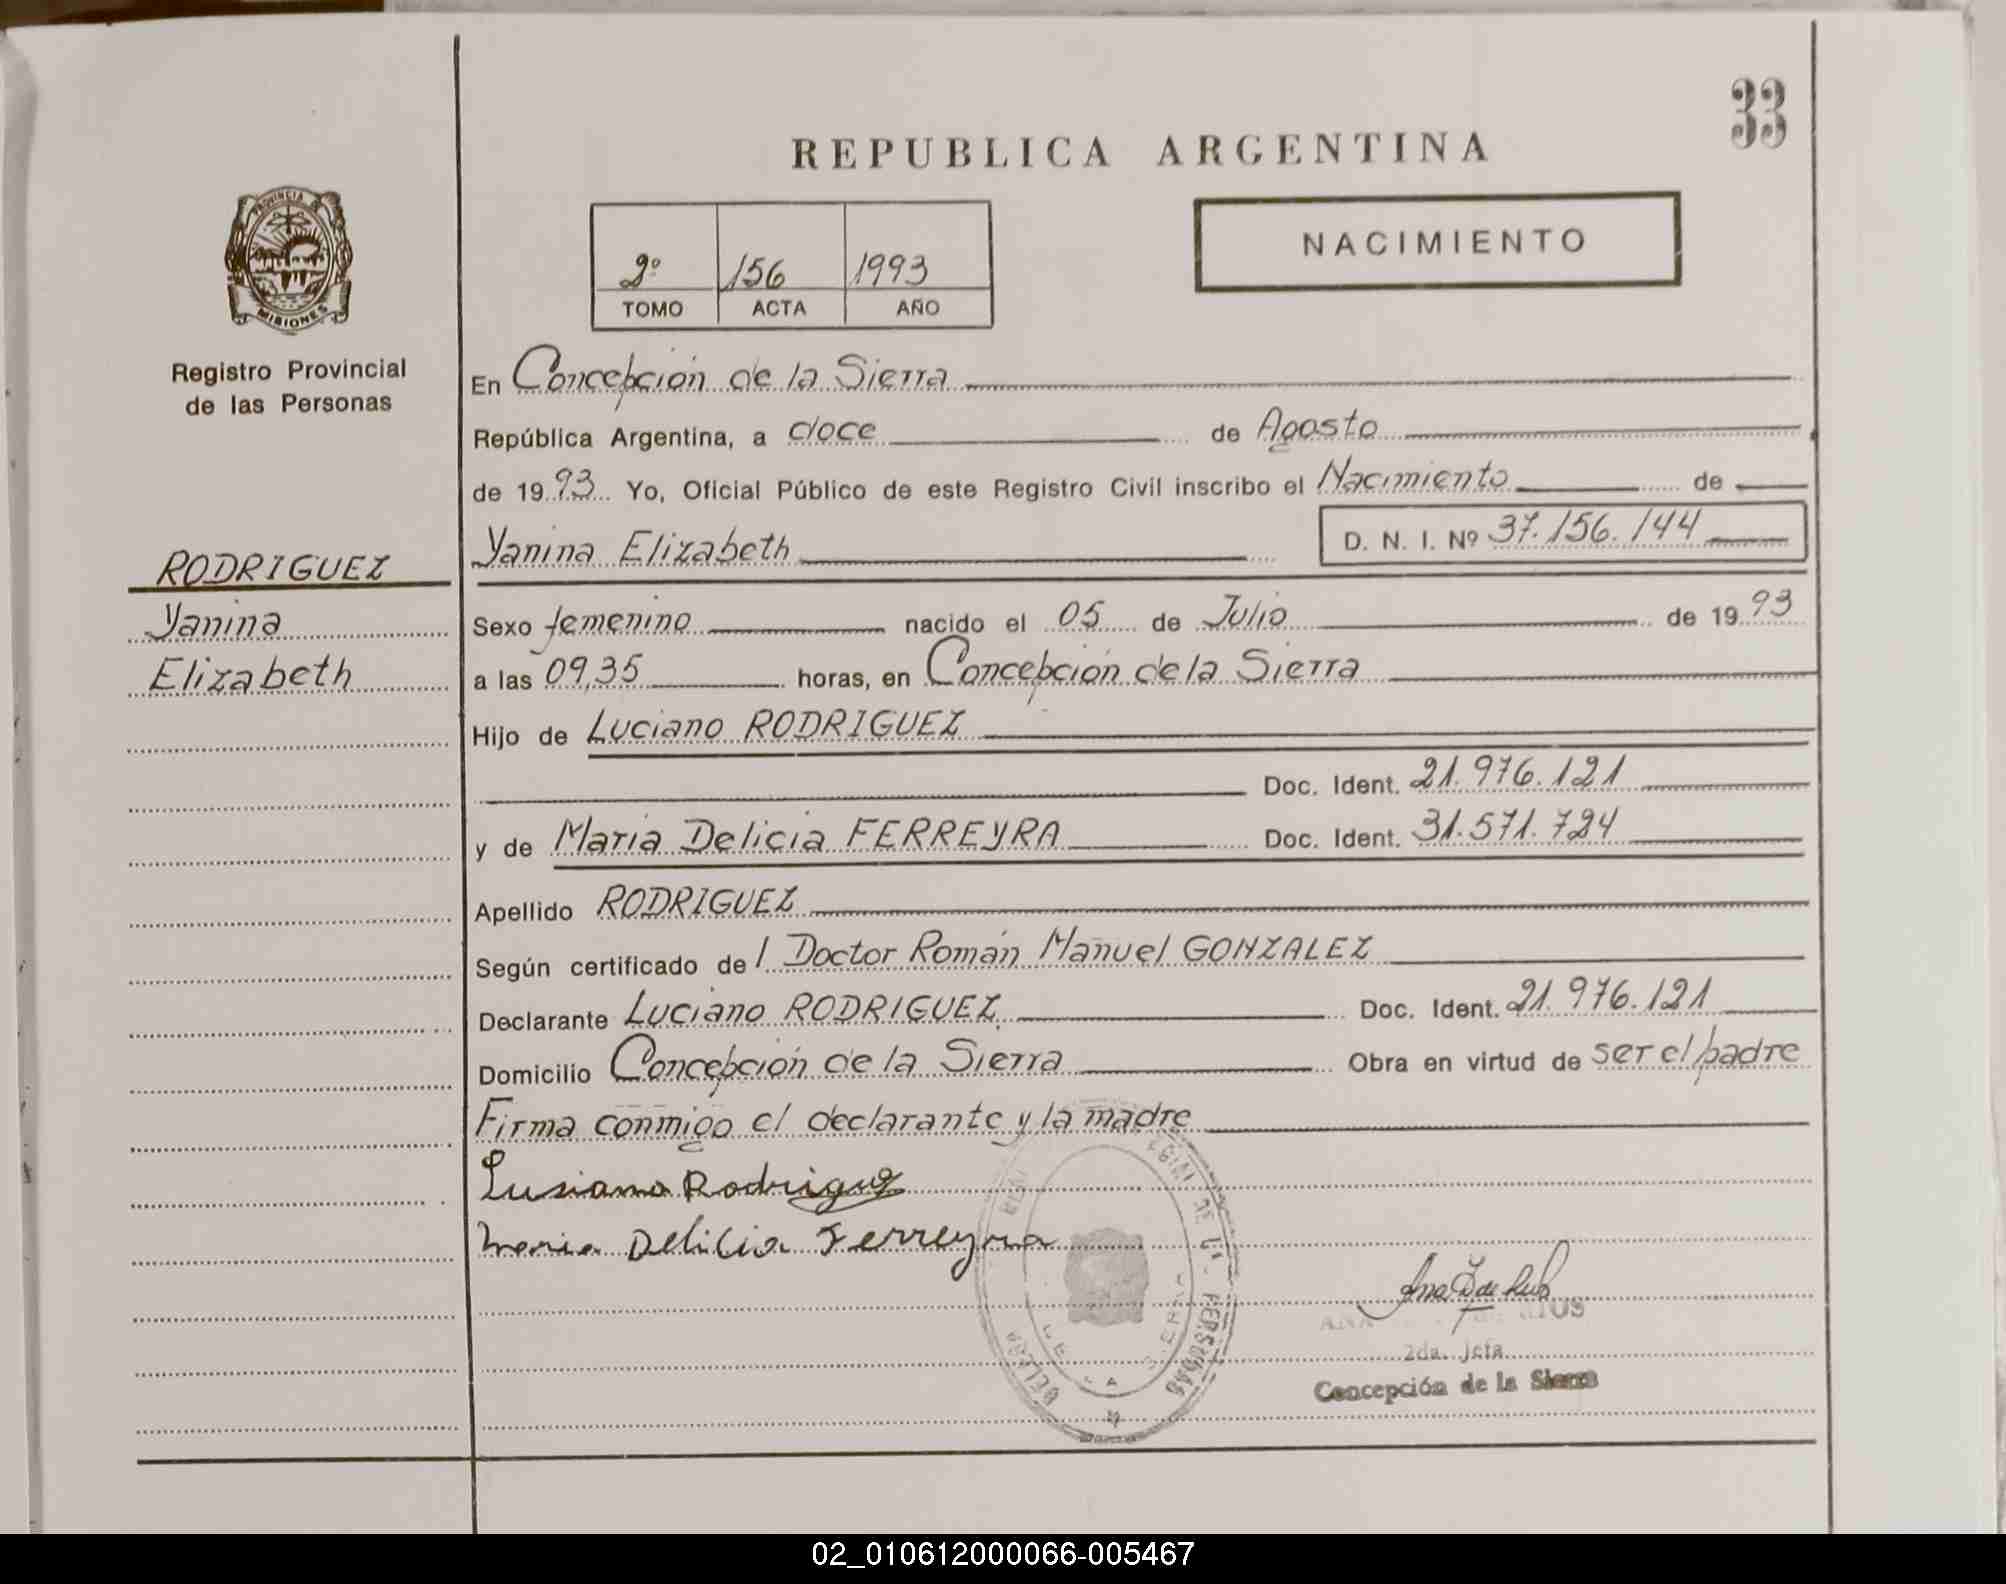 33
REPUBLICA ARGENTINA
2º 156 1993
TOMO ACTA AÑO
NACIMIENTO
PROVINCIA DE
MISIONES
Registro Provincial
de las Personas
RODRIGUEZ
Yanina
Elizabeth
En Concepción de la Sierra
República Argentina, a doce de Agosto
de 1993 Yo, Oficial Público de este Registro Civil inscribo el Nacimiento de
Yanina Elizabeth D. N. I. Nº 37.156.144
Sexo femenino nacido el 05 de Julio de 1993
a las 09,35 horas, en Concepción de la Sierra
Hijo de Luciano RODRIGUEZ
Doc. Ident. 21.976.121
y de Maria Delicia FERREYRA Doc. Ident. 31.571.724
Apellido RODRIGUEZ
Según certificado del Doctor Román Manuel GONZALEZ
Declarante Luciano RODRIGUEZ Doc. Ident. 21.976.121
Domicilio Concepción de la Sierra Obra en virtud de ser el padre
Firma conmigo el declarante y la madre
Lusiano Rodriguez
Maria Delicia Ferreyra
ANA
2da. Jefa
Concepción de la Sierra
02_010612000066-005467